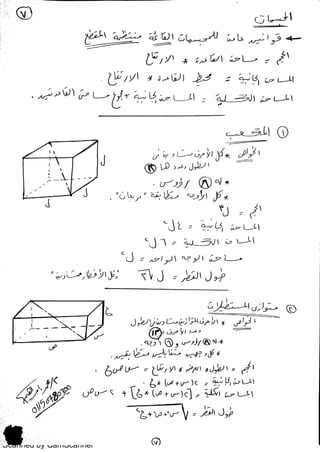 ٧
المجسمات
← قوانين عامة للمجسمات القائمة منتظمة المقطع
الحجم = مساحة القاعدة * الارتفاع
المساحة الجانبية = محيط القاعدة * الارتفاع
المساحة الكلية = المساحة الجانبية + مجموع مساحتي القاعدتين.
① المكعب
الخواص * كل الأحرف متساوية في
الطول وعددها ⑫
* له ⑧ رؤوس.
* كل الأوجه متطابقة "مربعات".
الحجم = ل٣
المساحة الجانبية = ٤ل٢
المساحة الكلية = ٦ل٢
مساحة الوجه الواحد = ل٢
طول القطر = ل√٣ "كل الأقطار متساوية"
ل
ل
ل
② متوازي المستطيلات
الخواص * الأحرف المتوازية متساوية في الطول
وعدد الأحرف ⑫
* له ⑧ رؤوس و ⑥ أوجه.
* كل وجهين متقابلين متطابقين.
الحجم = الطول * العرض * الارتفاع = س ص ع
المساحة الجانبية = ٢(س+ص) * ع
المساحة الكلية = [٢(س+ص) * ع] + ٢ س ص
طول القطر = √س٢+ص٢+ع٢
ع
ص
س
(٧)
Scanned by CamScanner